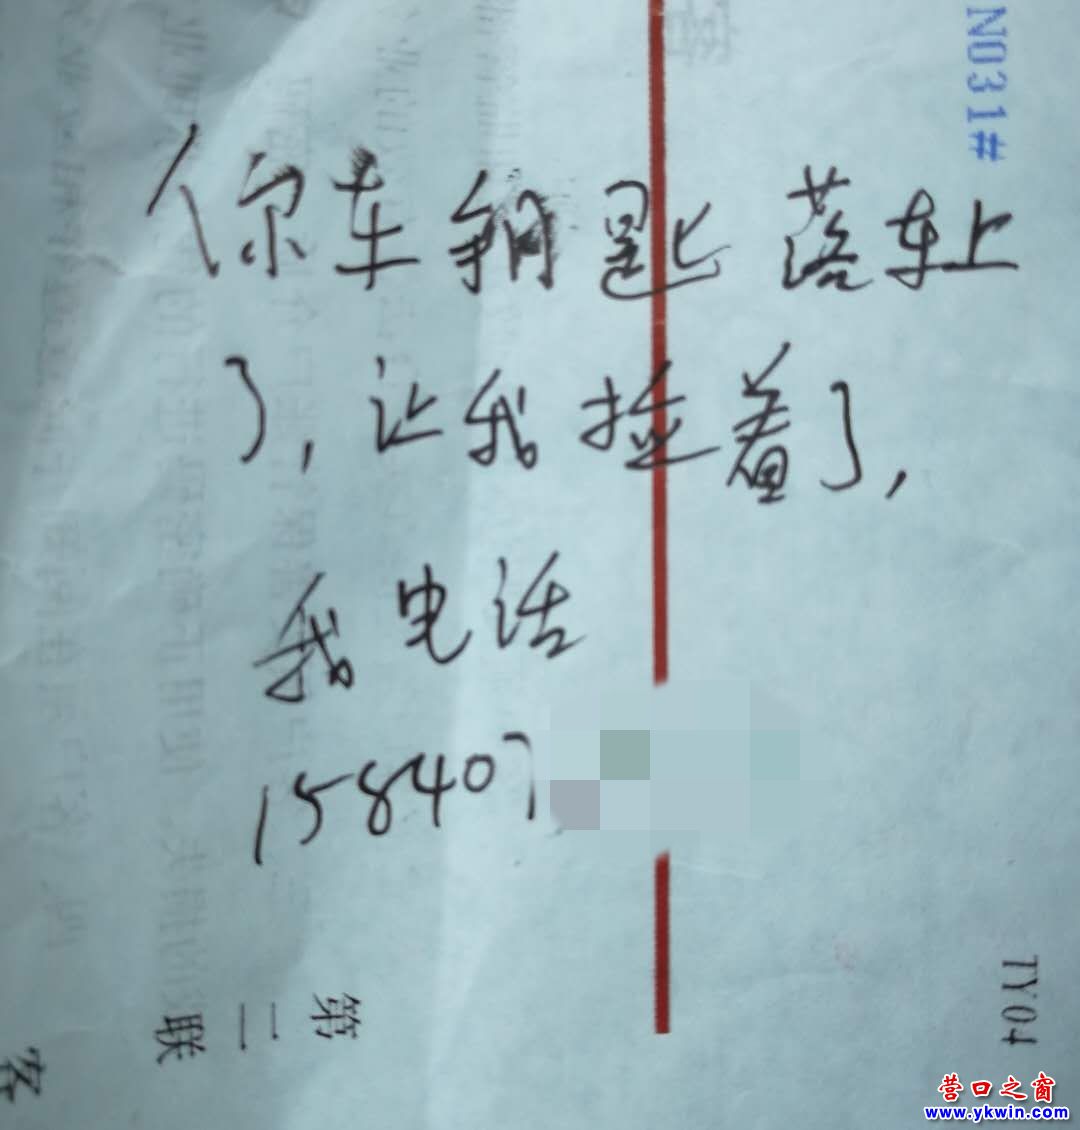 你车钥匙落车上
了，让我捡着了，
我电话
158407
N031#
TY04
第
二
联
客
营口之窗
www.ykwin.com